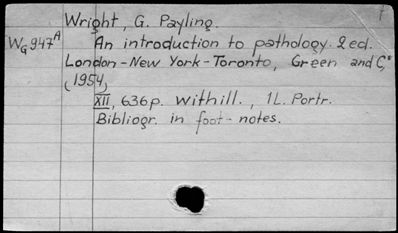 Wright, G. Payling.
WG947A An introduction to pathology. 2 ed.
London-New York-Toronto, Green and Co
(1954)
XII, 636p. withill., 1L. Portr.
Bibliogr. in foot-notes.